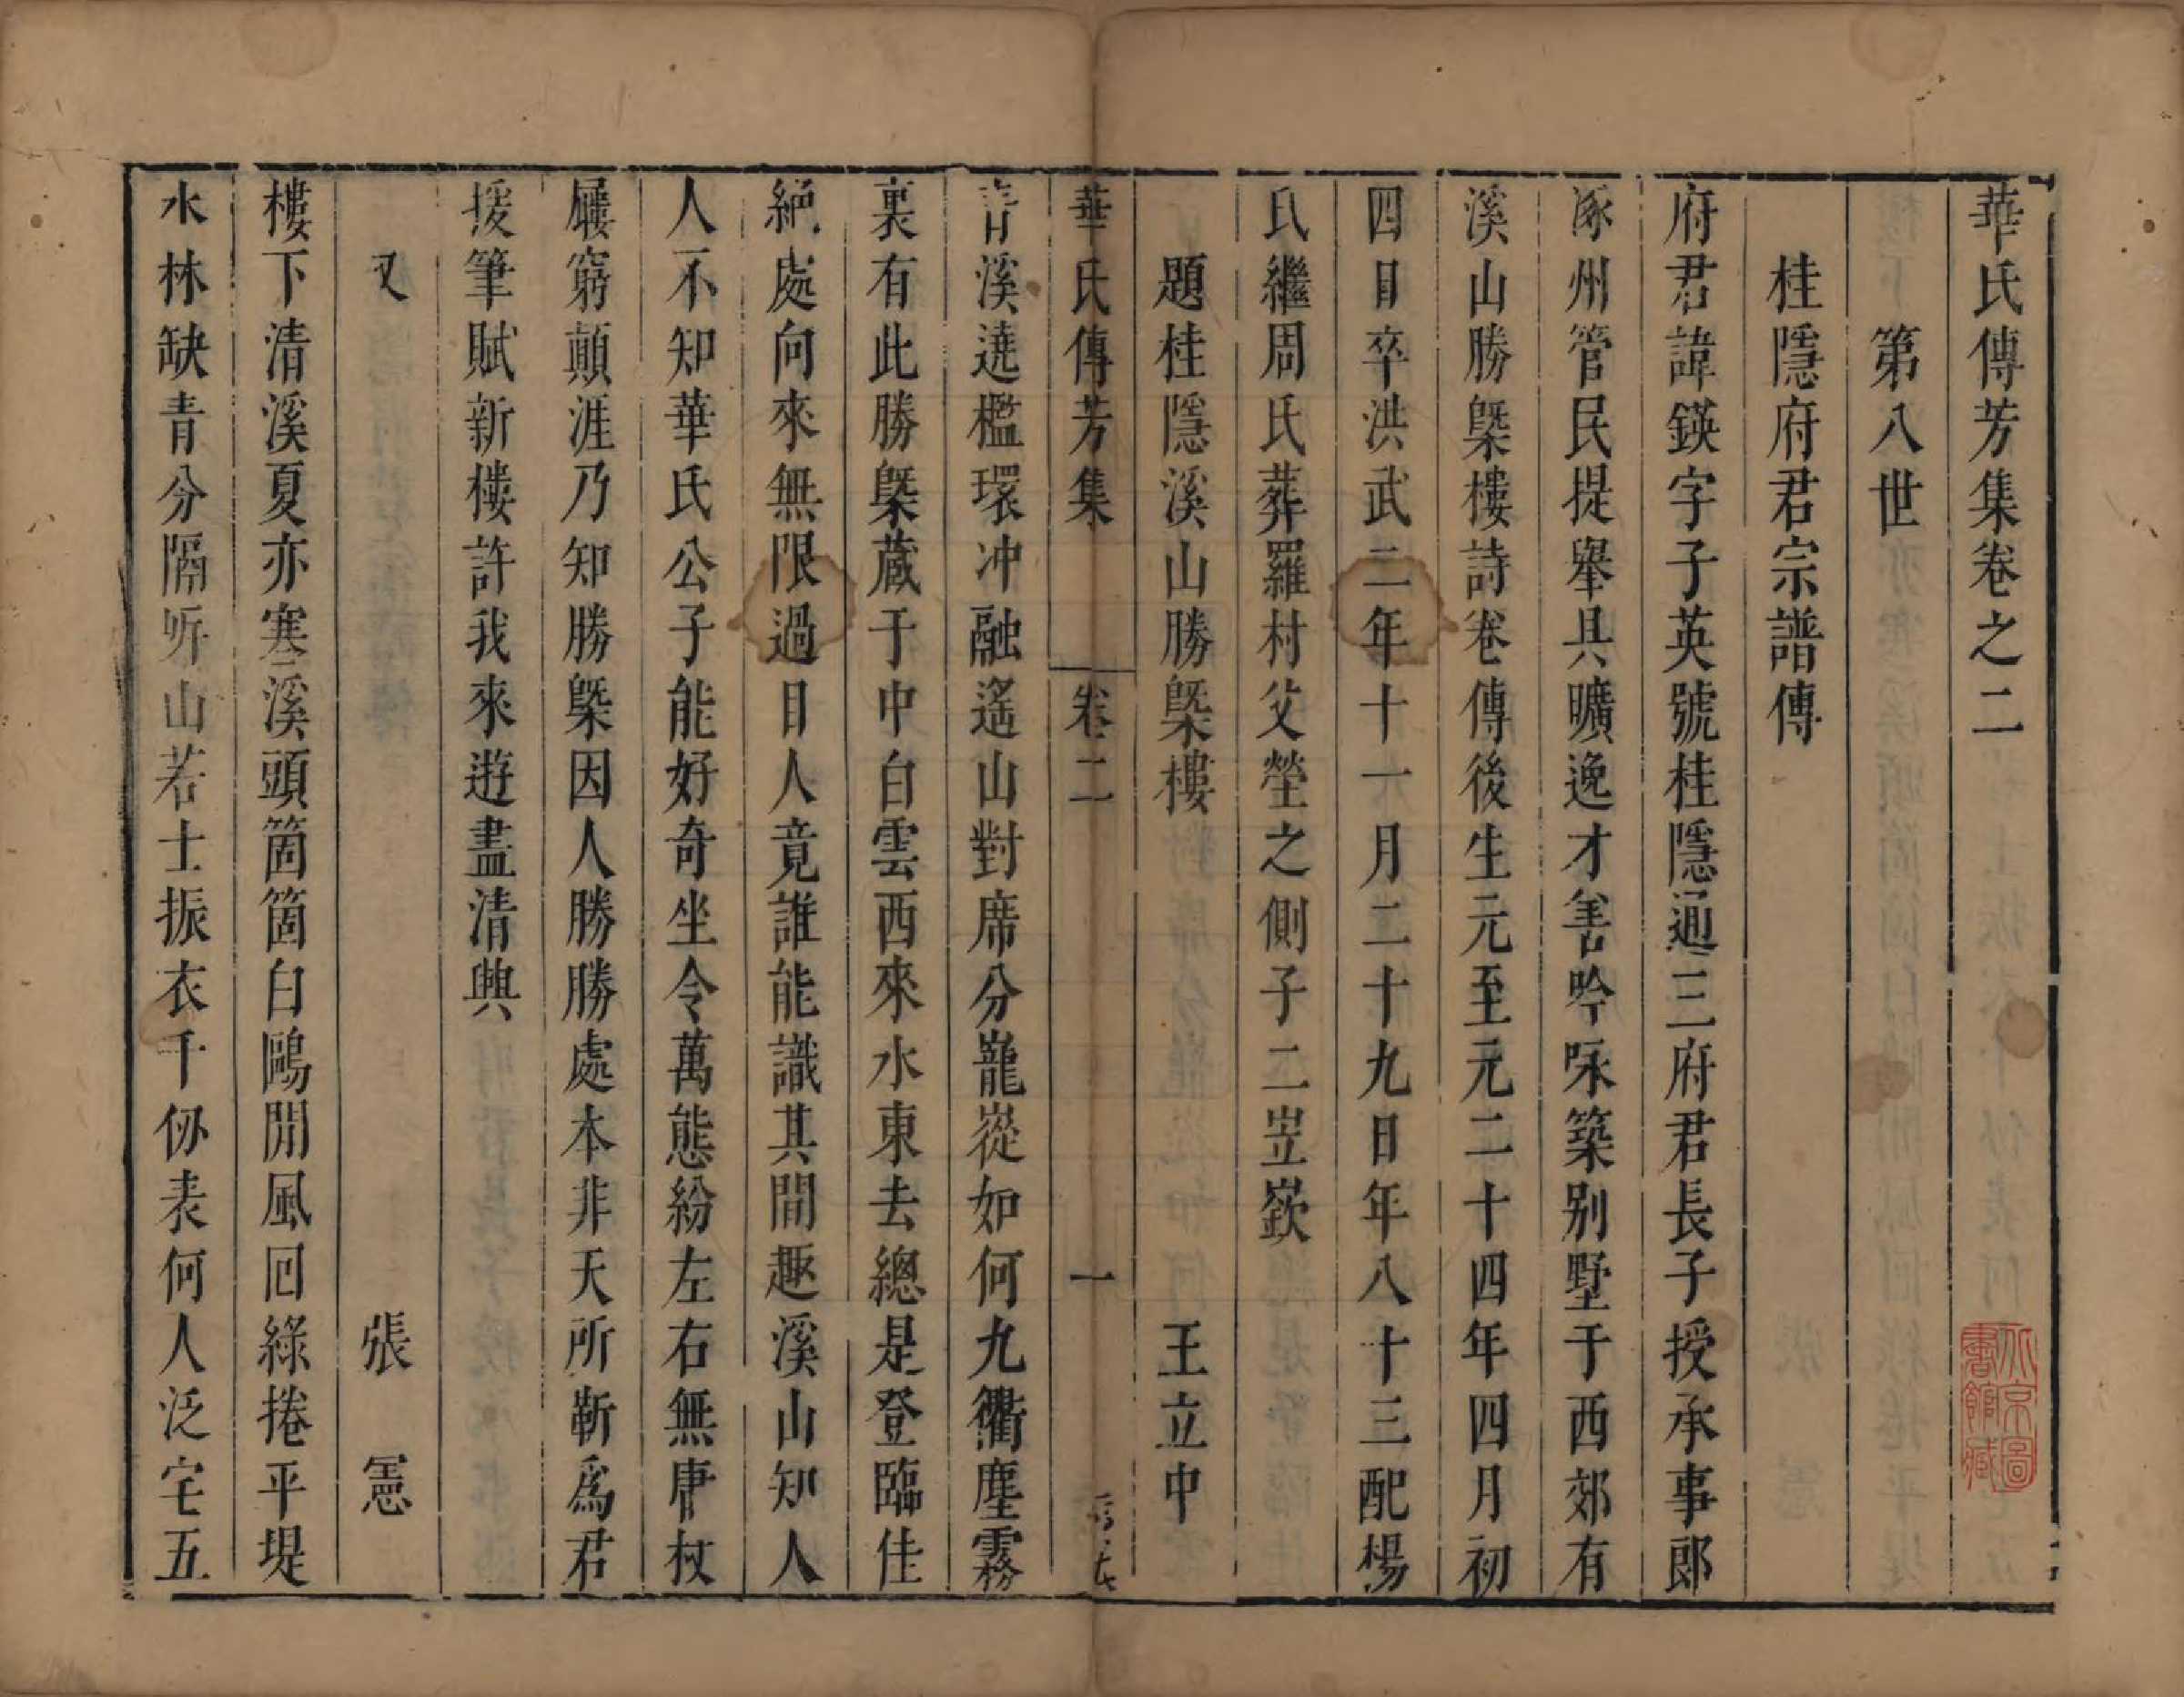 華氏傳芳集卷之二
第八世
桂隱府君宗譜傳
府君諱鍈字子英號桂隱通三府君長子授承事郎
涿州管民提舉具曠逸才善吟咏築別墅于西郊有
溪山勝槩樓詩卷傳後生元至元二十四年四月初
四日卒洪武二年十一月二十九日年八十三配楊
氏繼周氏葬羅村父塋之側子二岦嶔
題桂隱溪山勝槩樓 王立中
華氏傳芳集 卷二 一
青溪遶檻環冲融遙山對席分巃嵸如何九衢塵霧
裏有此勝槩蔵于中白雲西來水東去總是登臨佳
絶處向來無限過目人竟誰能識其間趣溪山知人
人不知華氏公子能好奇坐令萬態紛左右無庸杖
屨窮巔涯乃知勝槩因人勝勝處本非天所靳爲君
援筆賦新樓許我來遊盡清興
又 張憲
樓下清溪夏亦寒溪頭箇箇白鷗閒風回綠捲平堤
水林缺青分隔岸山若士振衣千仭表何人泛宅五
京圖
書館藏